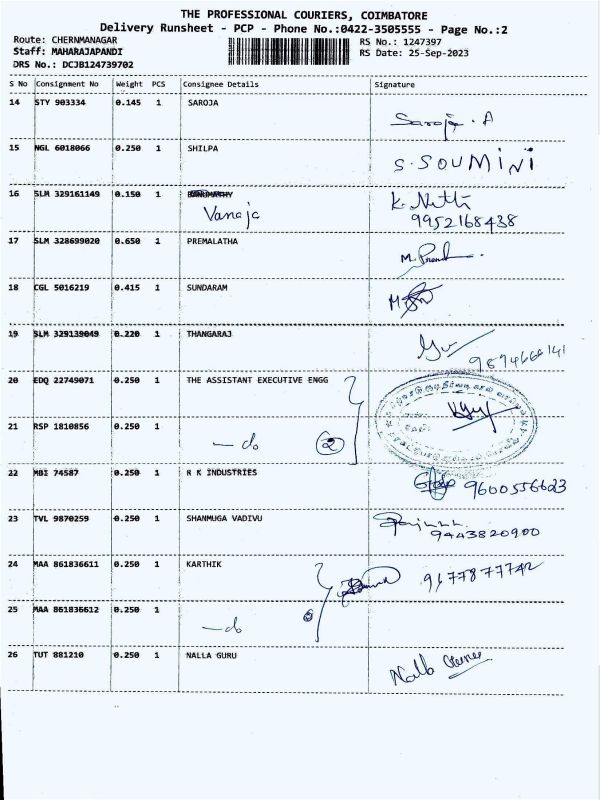 THE PROFESSIONAL COURIERS, COIMBATORE
Delivery Runsheet - PCP - Phone No.:0422-3505555 - Page No.:2
Route: CHERNMANAGAR RS No.: 1247397
Staff: MAHARAJAPANDI RS Date: 25-Sep-2023
DRS No.: DCJB124739702
S No Consignment No Weight PCS Consignee Details Signature
14 STY 903334 0.145 1 SAROJA
Saroja . A
15 NGL 6018066 0.250 1 SHILPA
S. SOUMINI
16 SLM 329161149 0.150 1
Vanaja K.
9952168438
17 SLM 328699020 0.650 1 PREMALATHA
M.
18 CGL 5016219 0.415 1 SUNDARAM
19 SLM 329139049 0.220 1 THANGARAJ
20 EDQ 22749071 0.250 1 THE ASSISTANT EXECUTIVE ENGG
21 RSP 1810856 0.250 1
— do 2
22 MBI 74587 0.250 1 R K INDUSTRIES
9600556623
23 TVL 9870259 0.250 1 SHANMUGA VADIVU
9443820900
24 MAA 861836611 0.250 1 KARTHIK
9677877742
25 MAA 861836612 0.250 1
— do
26 TUT 881210 0.250 1 NALLA GURU
Nalla